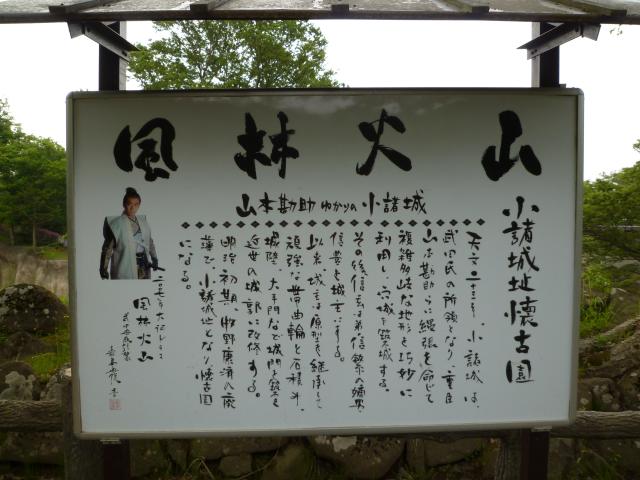 風林火山
山本勘助ゆかりの小諸城
小諸城址懐古園
天文二十三年、小諸城は、
武田氏の所領となり、重臣
山本勘助らに縄張を命じて
複雑多岐な地形を巧妙に
利用し、穴城を築城する。
その後信玄は弟信繁の嫡男
信豊を城主にする。
以来、城主は原型を継承して
頑強な帯曲輪と石積み、
城壁、大手門など城門を築き
近世の城郭に改修する。
明治初期、小諸藩の廃
藩で、小諸城址となり懐古園
になる。
二〇〇七年大河ドラマ
風林火山